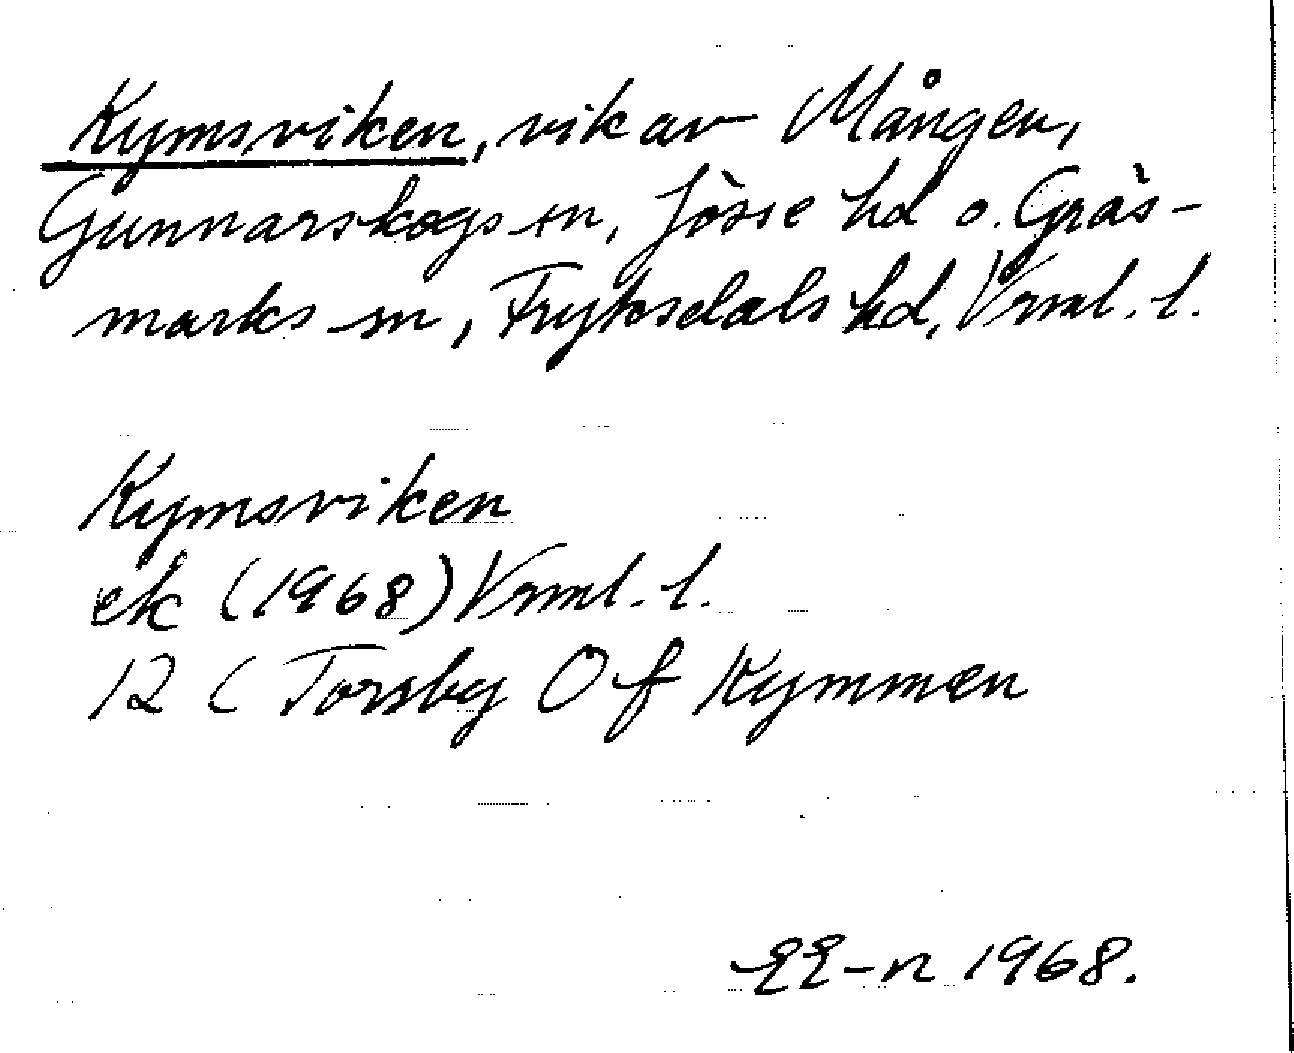 Kymsviken, vik av Mången,
Gunnarskogs sn, Jösse hd o. Gräs-
marks sn, Fryksdals hd, Vrml. l.
Kymsviken
ek (1968) Vrml. l.
12 C Torsby O f Kymmen
EE-n 1968.